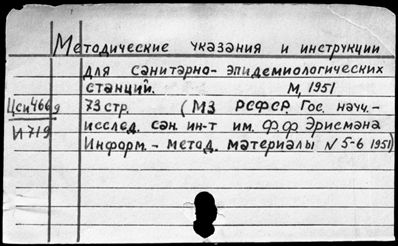 Методические указания и инструкции
для санитарно-эпидемиологических
станций. М, 1951
Цси466д
73 стр. (МЗ РСФСР. Гос. науч.-
И719
исслед. сан. ин-т им. Ф.Ф Эрисмана
Информ.- метод. материалы N 5-6 1951)